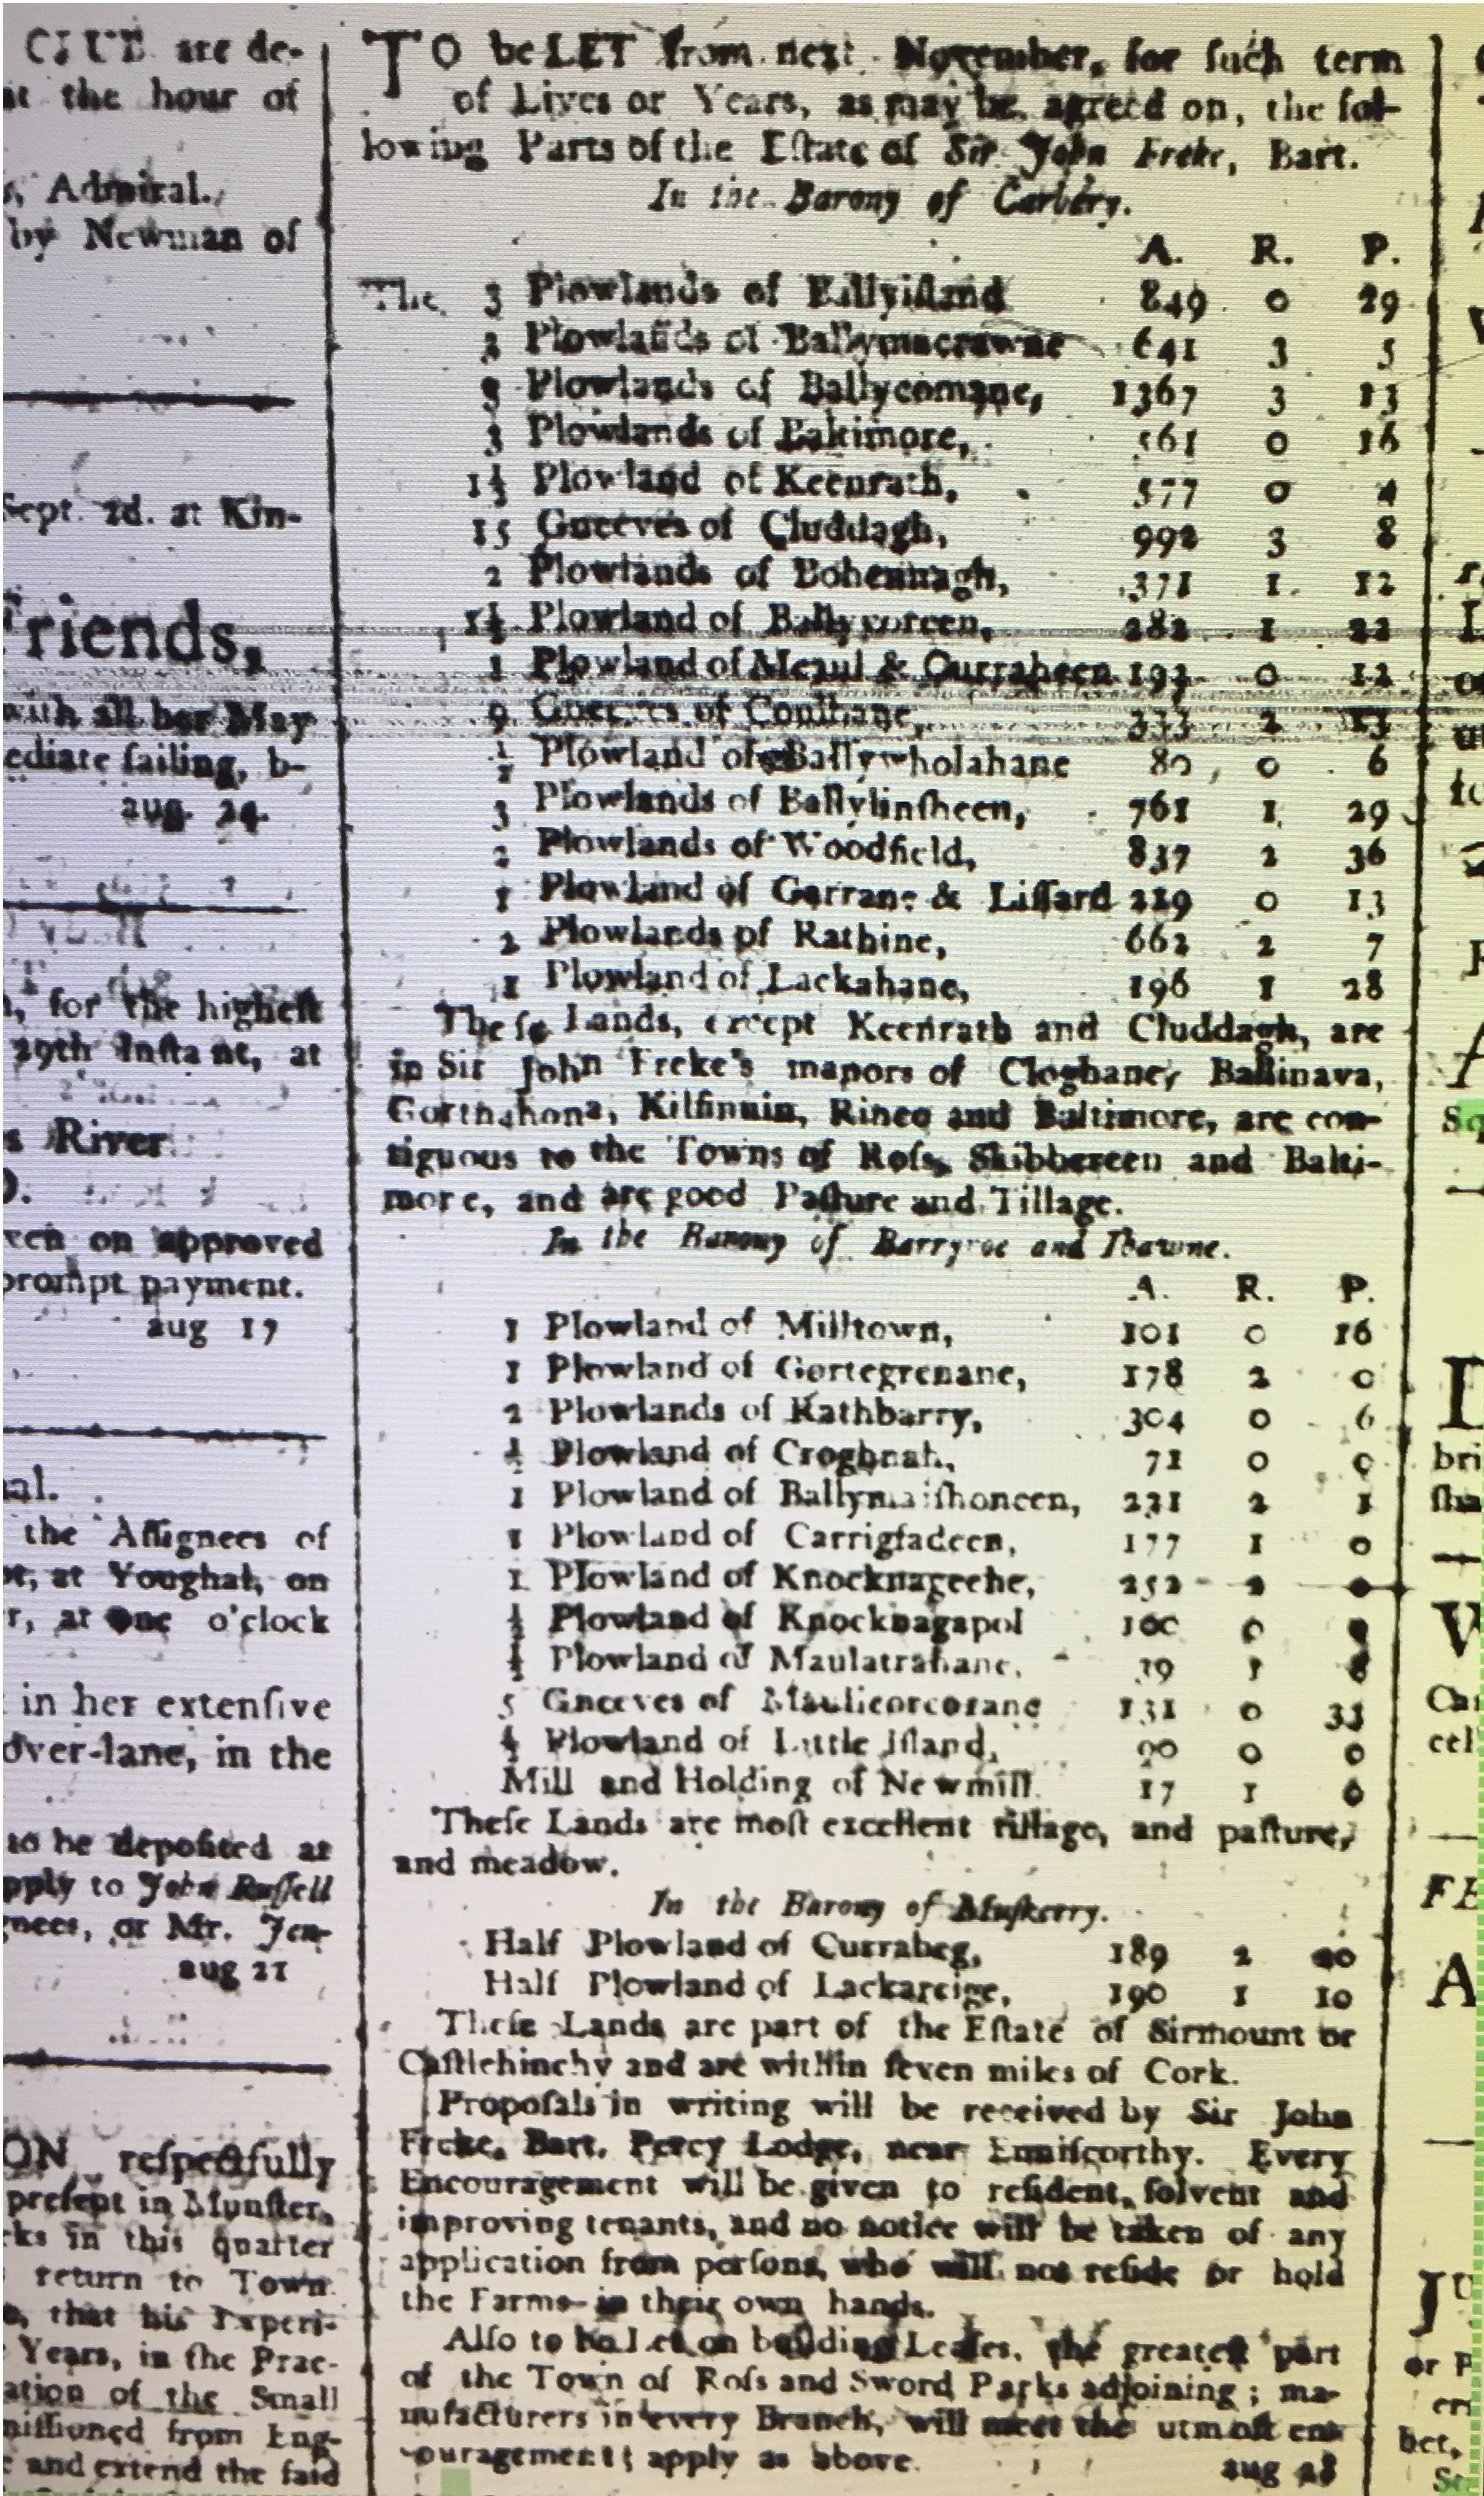 CLUB are de-
at the hour of
s, Admiral.
by Newman of
Sept. 2d. at Kin-
Friends,
with all her May
ediate ſailing, b-
aug. 24.
n, for the higheſt
29th Inſtant, at
s River
ven on approved
prompt payment.
aug 17
al.
the Aſſignees of
at Youghal, on
r, at one o'clock
in her extenſive
over-lane, in the
to be depoſited at
pply to John Ruſſell
nees, or Mr. Jen-
aug 21
ON reſpectfully
preſent in Munſter,
rks in this quarter
return to Town
that his Experi-
Years, in the Prac-
ation of the Small
miſſioned from Eng-
and extend the ſaid
TO be LET from next November, for ſuch term
of Lives or Years, as may be agreed on, the fol-
lowing Parts of the Eſtate of Sir John Freke, Bart.
In the Barony of Carbery.
A. R. P.
The 3 Plowlands of Ballyiſland 849 0 29
2 Plowlands of Ballymacrawne 641 3 5
9 Plowlands of Ballycomane, 1367 3 13
3 Plowlands of Baltimore, 561 0 16
1½ Plowland of Keenrath, 577 0 4
15 Gneeves of Cluddagh, 992 3 8
2 Plowlands of Bohennagh, 371 1 12
1½ Plowland of Ballycoreen, 282 1 22
1 Plowland of Meaul & Curraheen 192 0 12
9 Gneeves of 333 2 13
½ Plowland of Ballywholahane 80 0 6
3 Plowlands of Ballylinſheen, 761 1 29
2 Plowlands of Woodfield, 837 2 36
1 Plowland of Garrane & Liſſard 219 0 13
2 Plowlands of Rathine, 662 2 7
1 Plowland of Lackahane, 196 1 28
Theſe Lands, except Keenrath and Cluddagh, are
in Sir John Freke's manors of Cloghane, Ballinava,
Gortnahona, Kilfinnin, Rineo and Baltimore, are con-
tiguous to the Towns of Roſs, Skibbereen and Balti-
more, and are good Paſture and Tillage.
In the Barony of Barryroe and Ibawne.
A. R. P.
1 Plowland of Milltown, 101 0 16
1 Plowland of Gortegrenane, 178 2 0
2 Plowlands of Rathbarry, 304 0 6
½ Plowland of Croghnah, 71 0 0
1 Plowland of Ballymaiſhoneen, 231 2 1
1 Plowland of Carrigfadeen, 177 1 0
1 Plowland of Knocknageehe, 252 2 0
½ Plowland of Knocknagapol 100 0
½ Plowland of Maulatrahane, 39 1
5 Gneeves of Maulicorcorane 131 0 33
½ Plowland of Little Iſland, 90 0 0
Mill and Holding of Newmill 17 1 0
Theſe Lands are moſt excellent tillage, and paſture,
and meadow.
In the Barony of Muſkerry.
Half Plowland of Currabeg, 189 2 20
Half Plowland of Lackareige, 190 1 10
Theſe Lands are part of the Eſtate of Sirmount or
Caſtlehinchy and are within ſeven miles of Cork.
Propoſals in writing will be received by Sir John
Freke, Bart. Percy Lodge, near Enniſcorthy. Every
Encouragement will be given to reſident, ſolvent and
improving tenants, and no notice will be taken of any
application from perſons, who will not reſide or hold
the Farms in their own hands.
Alſo to be Let on building Leaſes, the greateſt part
of the Town of Roſs and Sword Parks adjoining; ma-
nufacturers in every Branch, will meet the utmoſt en-
couragement; apply as above.
aug 28